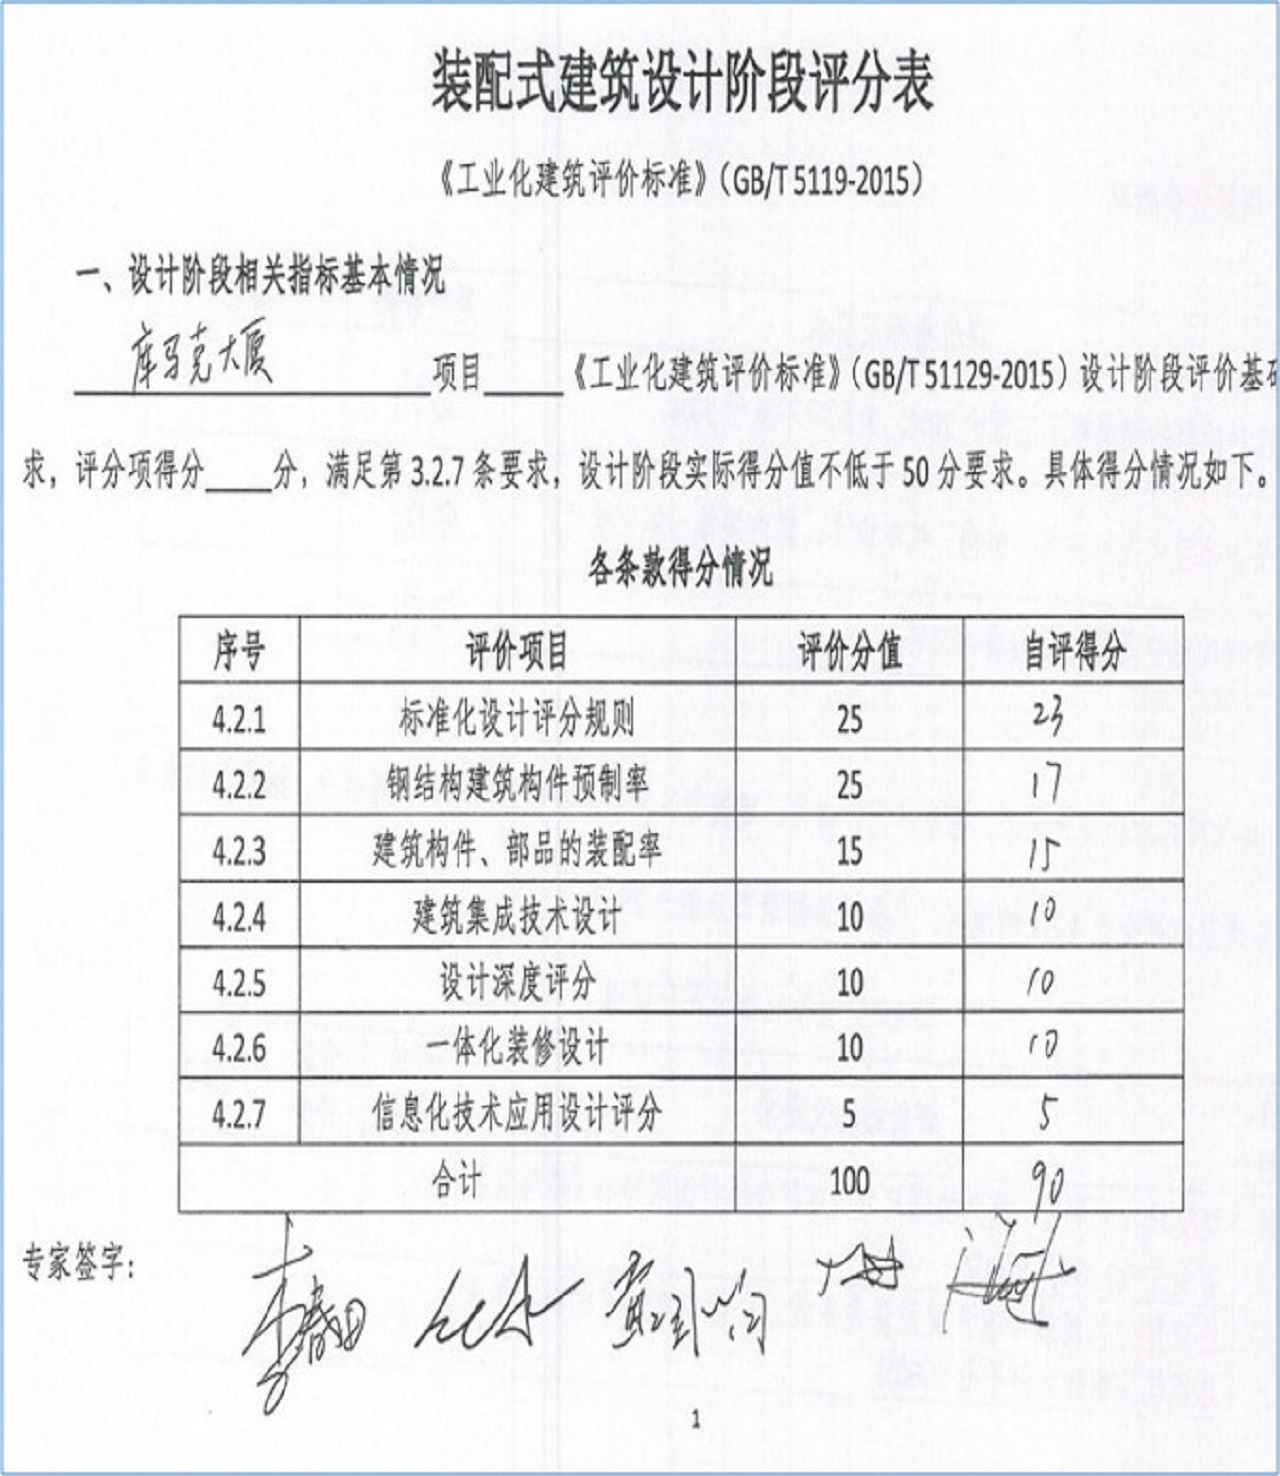 装配式建筑设计阶段评分表
《工业化建筑评价标准》(GB/T 5119-2015)
一、设计阶段相关指标基本情况
库马克大厦 项目 《工业化建筑评价标准》(GB/T 51129-2015) 设计阶段评价基
求，评分项得分 分，满足第 3.2.7 条要求，设计阶段实际得分值不低于 50 分要求。具体得分情况如下。
各条款得分情况
序号 评价项目 评价分值 自评得分
4.2.1 标准化设计评分规则 25 23
4.2.2 钢结构建筑构件预制率 25 17
4.2.3 建筑构件、部品的装配率 15 15
4.2.4 建筑集成技术设计 10 10
4.2.5 设计深度评分 10 10
4.2.6 一体化装修设计 10 10
4.2.7 信息化技术应用设计评分 5 5
合计 100 90
专家签字：
1